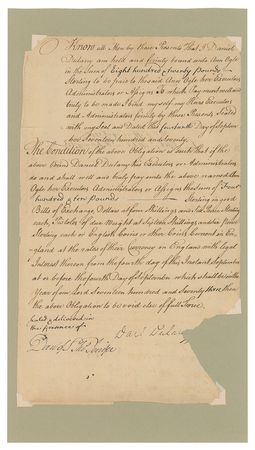 Know all Men by these Presents That I Daniel
Dulany am held and firmly bound unto Ann Ogle
in the Sum of Eight hundred & twenty Pounds
Sterling to be paid to the said Ann Ogle her Executors
Administrators or Assigns To which Pay ment well and
truly to be made I bind myself my Heirs Executors
and Administrators firmly by these Presents Sealed
with my Seal and Dated this fourteenth Day of Septem
ber Seventeen hundred and Seventy
The Condition of the above Obligation is Such that if the
above bound Daniel Dulany his Executors or Administrators
do and shall well and truly pay unto the above named Ann
Ogle her Executors Administrators or Assigns the Sum of Four
hundred & ten Pounds Sterling in good
Bills of Exchange Dollars at four Shillings and Six Pence
each, Pistoles of due Weight at Sixteen Shillings and
Sterling each or English Coins or other Coins Current in En
gland at the rates of their Currency in England with legal
Interest thereon from the fourth day of this Instant September
at or before the fourth Day of September which shall be in the
Year of our Lord Seventeen hundred and Seventy three then
the above Obligation to be void else of full Force
Sealed & delivered in
the presence of
Danl Dulany